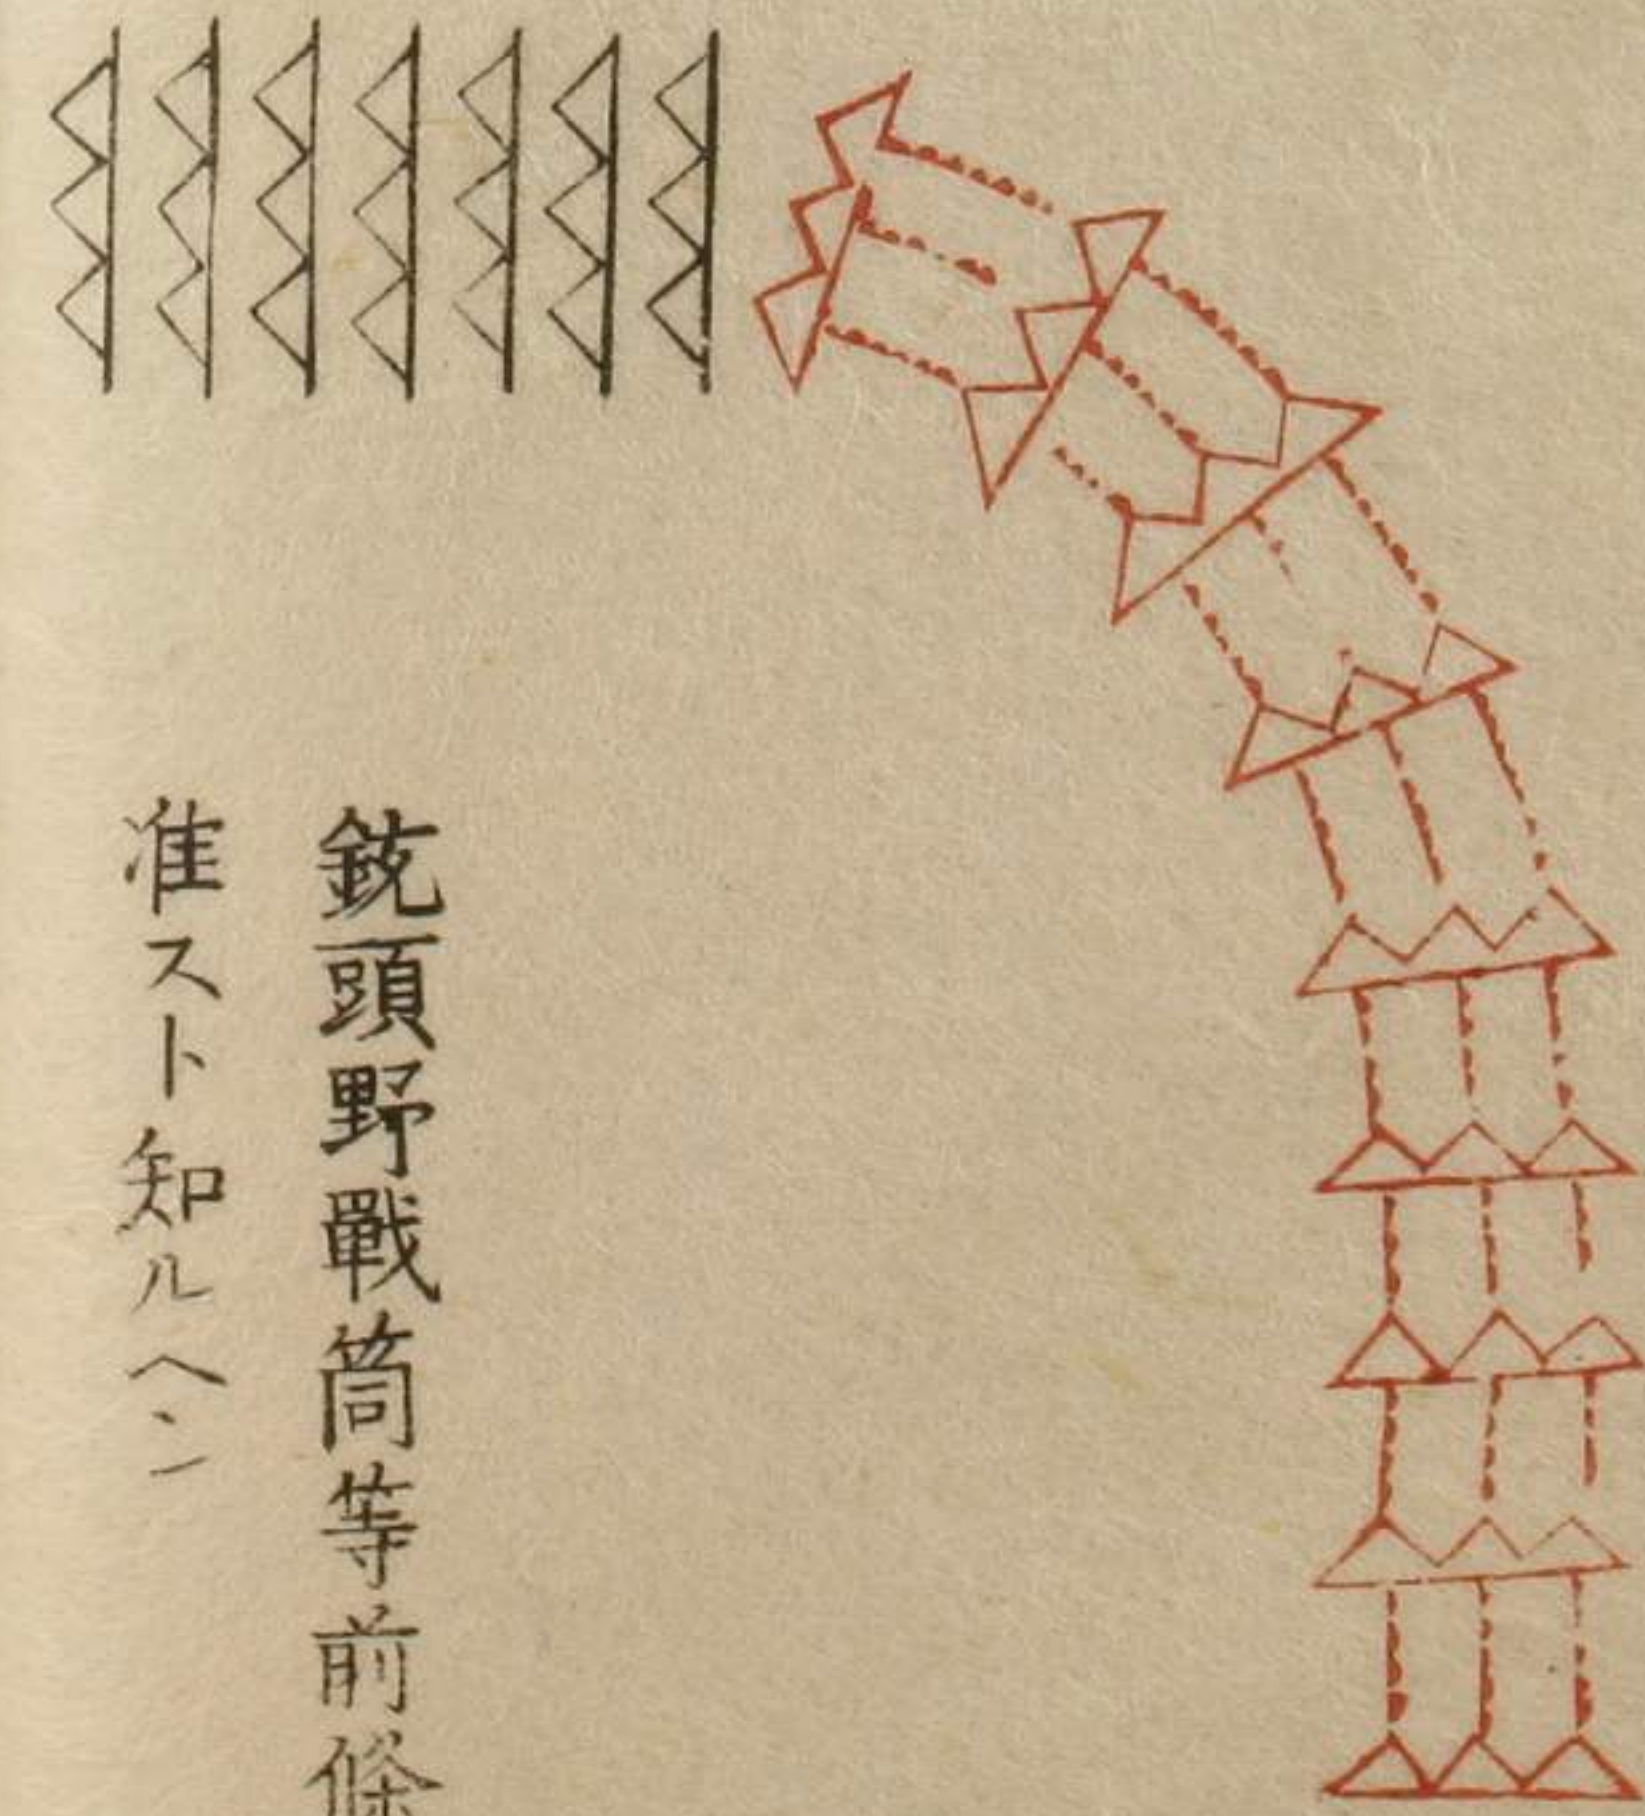 銃頭野戰筒等前條
准スト知ルヘシ